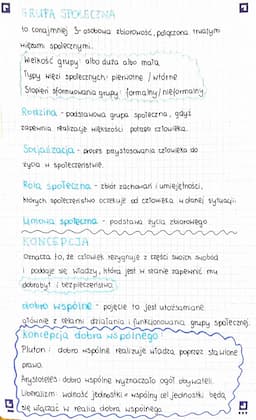 GRUPA SPOŁECZNA
to conajmniej 3-osobowa zbiorowość, połączona trwałym
więzami społecznymi.
Wielkość grupy: albo duża albo mała
Typy więzi społecznych: pierwotne / wtórne
Stopień sformowania grupy: formalny/nieformalny
Rodzina - podstawowa grupa społeczna, gdyż
zapewnia realizację większości potrzeb człowieka.
Socjalizacja - proces przystosowania człowieka do
życia w społeczeństwie.
Rola społeczna - zbiór zachowań i umiejętności,
których społeczeństwo oczekuje od człowieka w danej sytuacji
Umowa społeczna - podstawa życia zbiorowego
KONCEPCJA
Oznacza to, że człowiek rezygnuje z części swoich swobód
i poddaje się władzy, która jest w stanie zapewnić mu
dobrobyt i bezpieczeństwo.
dobro wspólne - pojęcie to jest utożsamiane
głównie z celami działania i funkcjonowania grupy społecznej.
Koncepcja dobra wspólnego:
Platon: dobro wspólne realizuje władza poprzez stawione
prawo.
Arystoteles: dobro wspólne wyznaczało ogół obywateli.
Liberalizm: wolność jednostki = wspólny cel jednostki będą
się wiązać w realia dobra wspólnego.